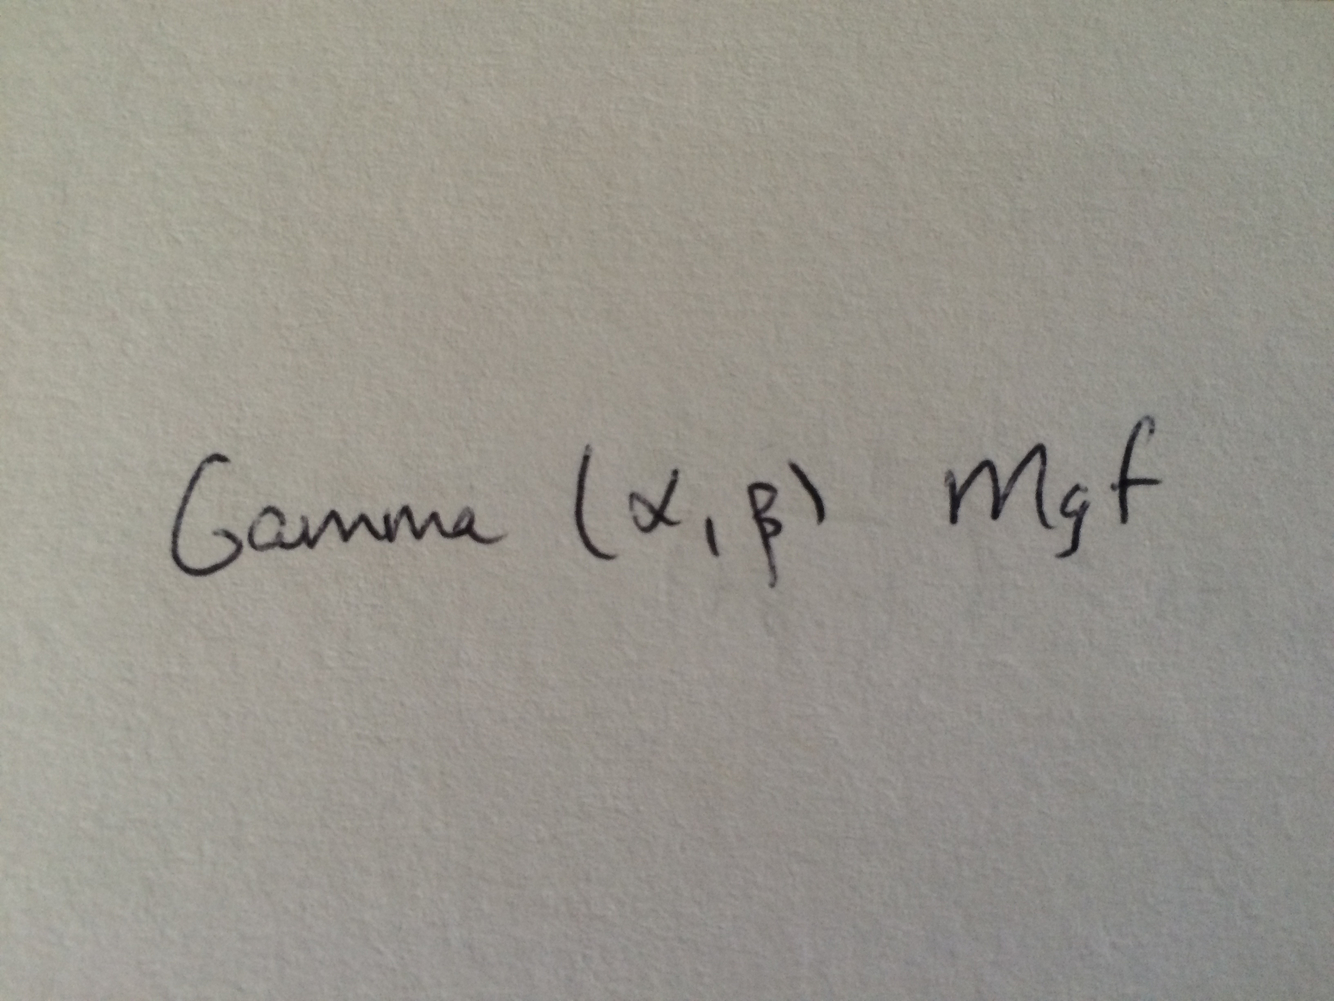 Gamma (α, β) Mgf